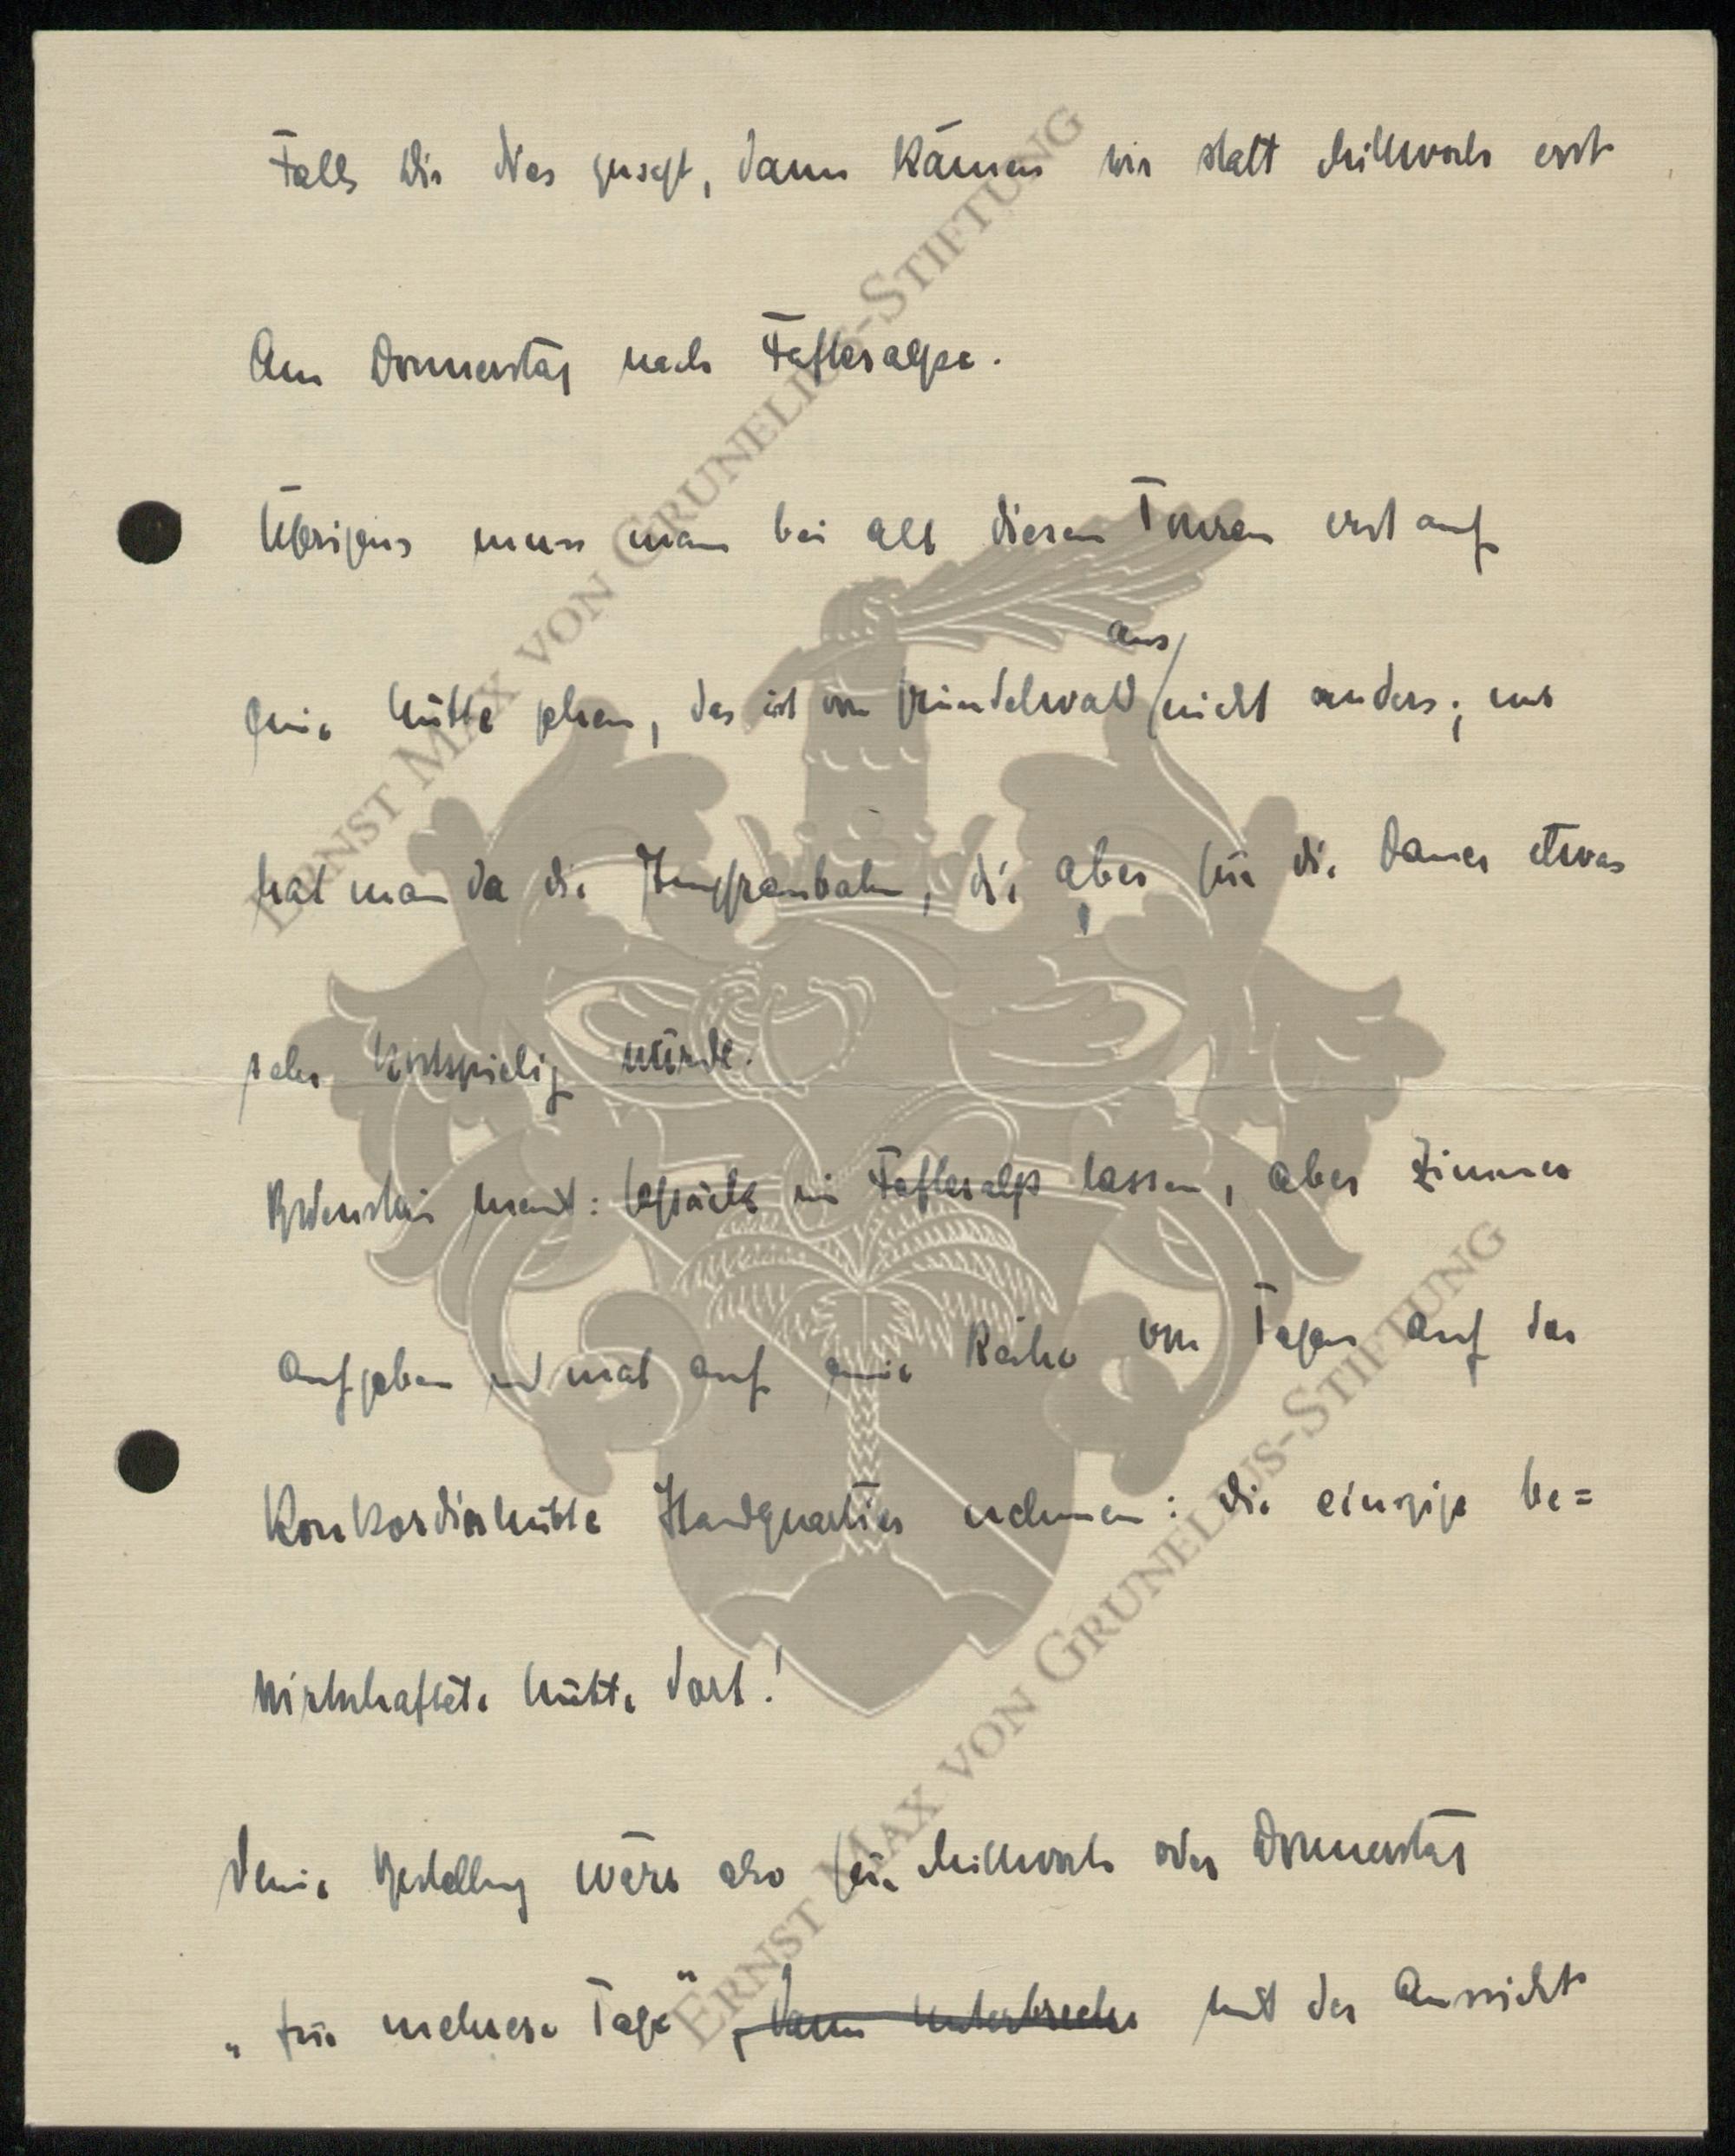 Falls Dir dies zusagt, dann kämen wir statt Mittwoch erst
Am Donnerstag nach Fafleralpe.
Übrigens muss man bei all diesen Touren erst auf
aus
eine Hütte gehen, das ist von Grindelwald nicht anders; nur
hat man da die Jungfraubahn, die aber für die Dauer etwas
sehr kostspielig würde.
meint: Gepäck in Fafleralp lassen, aber Zimmer
aufgeben und mal auf eine Reihe von Tagen auf der
Konkordiahütte Standquartier nehmen: die einzige be=
wirtschaftete Hütte dort!
Deine Bestellung wäre also für Mittwoch oder Donnerstag
„für mehrere Tage", dann unterbrechen mit der Aussicht
ERNST MAX VON GRUNELIUS-STIFTUNG
ERNST MAX VON GRUNELIUS-STIFTUNG